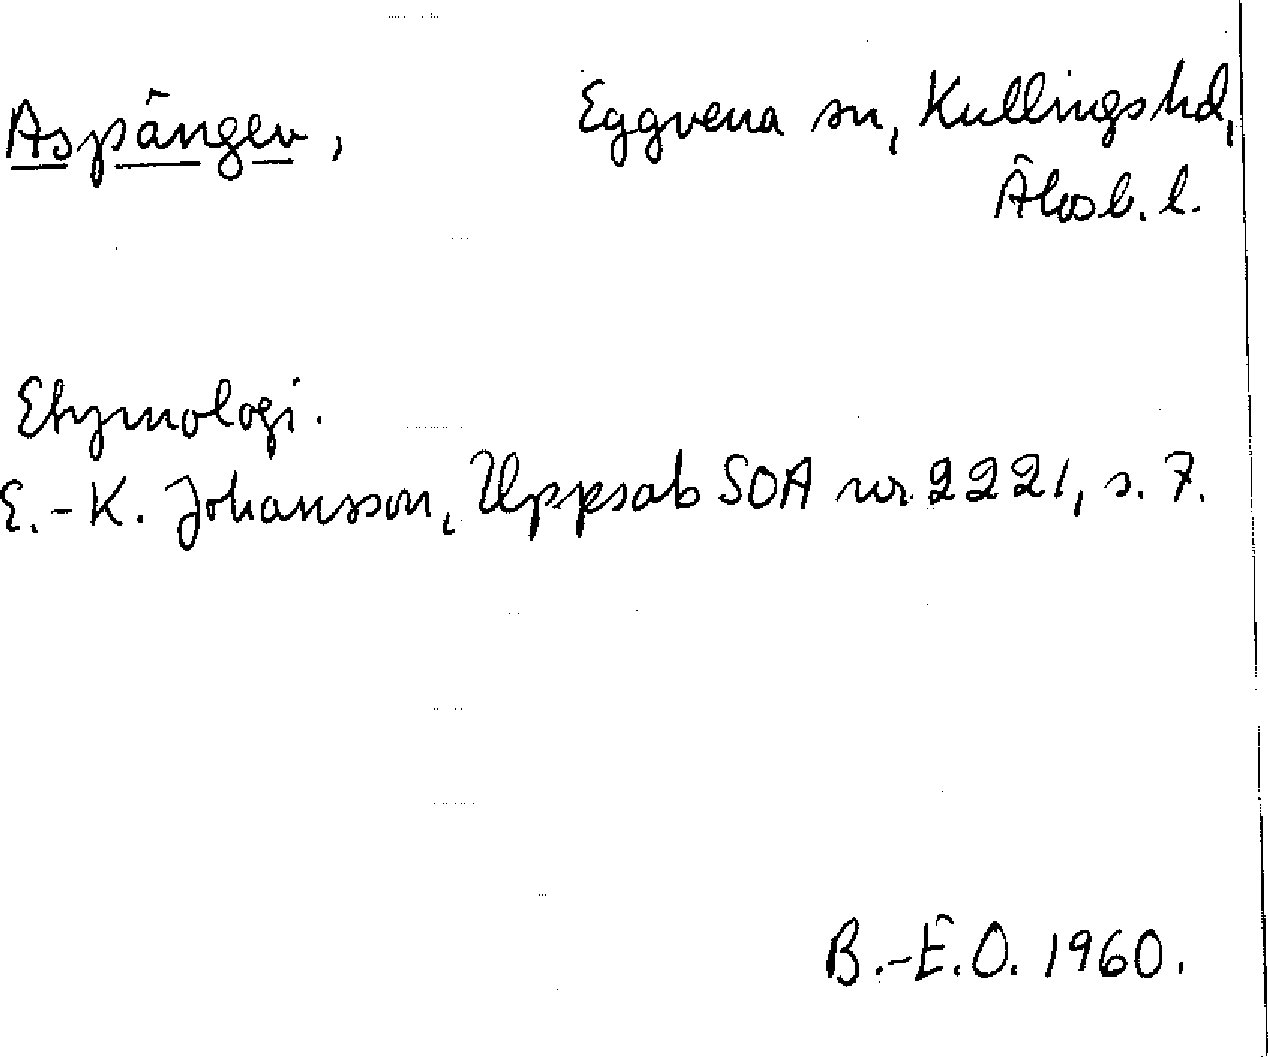 Aspängen, Eggvena sn, Kullings hd,
Älvsb. l.
Etymologi.
E.-K. Johansson, Uppsats SOA nr 2221, s. 7.
B.-E.O. 1960.